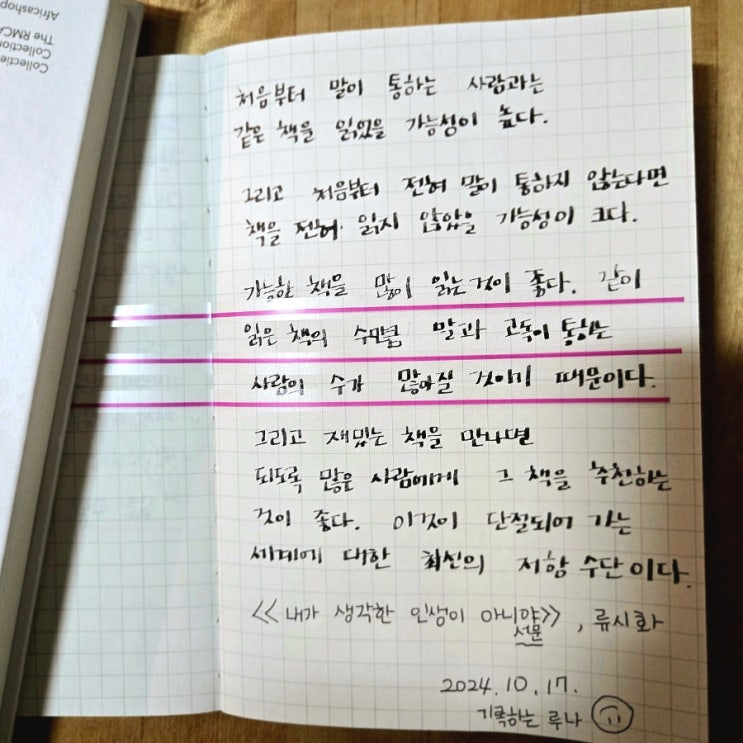 Africashop
The RMCA
Collection
Collectie
처음부터 말이 통하는 사람과는
같은 책을 읽었을 가능성이 높다.
그리고 처음부터 전혀 말이 통하지 않는다면
책을 전혀 읽지 않았을 가능성이 크다.
가능한 책을 많이 읽는 것이 좋다. 같이
읽은 책의 수만큼 말과 고독이 통하는
사람의 수가 많아질 것이기 때문이다.
그리고 재밌는 책을 만나면
되도록 많은 사람에게 그 책을 추천하는
것이 좋다. 이것이 단절되어 가는
세계에 대한 최선의 저항 수단이다.
<<내가 생각한 인생이 아니야>>, 류시화
서문
2024.10.17.
기록하는 루나